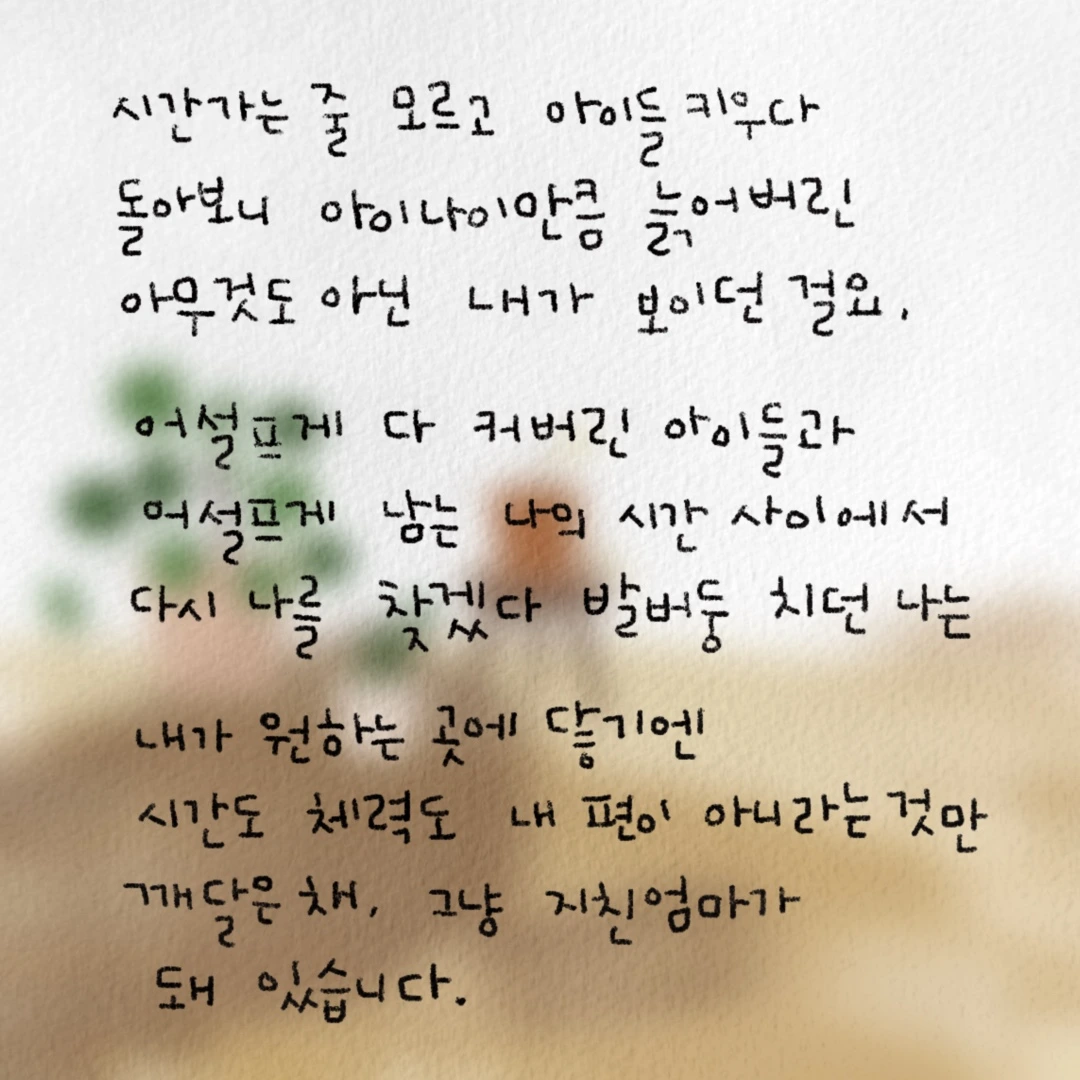 시간가는 줄 모르고 아이들 키우다
돌아보니 아이나이만큼 늙어버린
아무것도 아닌 내가 보이던 걸요.
어설프게 다 커버린 아이들과
어설프게 남는 나의 시간 사이에서
다시 나를 찾겠다 발버둥 치던 나는
내가 원하는 곳에 닿기엔
시간도 체력도 내 편이 아니라는 것만
깨달은 채, 그냥 지친엄마가
돼 있습니다.